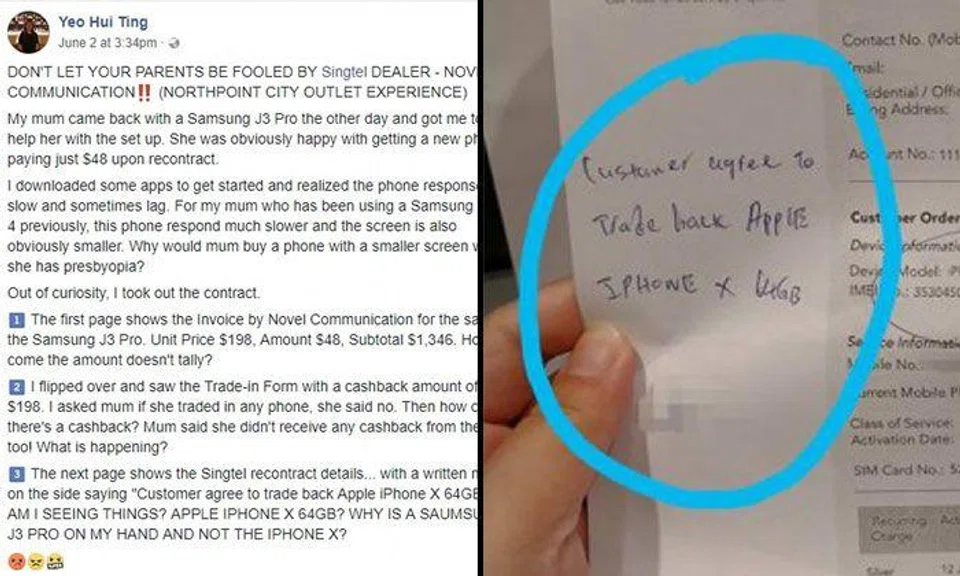 Yeo Hui Ting
June 2 at 3:34pm ·
DON'T LET YOUR PARENTS BE FOOLED BY Singtel DEALER - NOV
COMMUNICATION‼️ (NORTHPOINT CITY OUTLET EXPERIENCE)
My mum came back with a Samsung J3 Pro the other day and got me to
help her with the set up. She was obviously happy with getting a new ph
paying just $48 upon recontract.
I downloaded some apps to get started and realized the phone respons
slow and sometimes lag. For my mum who has been using a Samsung
4 previously, this phone respond much slower and the screen is also
obviously smaller. Why would mum buy a phone with a smaller screen w
she has presbyopia?
Out of curiosity, I took out the contract.
1 The first page shows the Invoice by Novel Communication for the sa
the Samsung J3 Pro. Unit Price $198, Amount $48, Subtotal $1,346. Ho
come the amount doesn't tally?
2 I flipped over and saw the Trade-in Form with a cashback amount of
$198. I asked mum if she traded in any phone, she said no. Then how c
there's a cashback? Mum said she didn't receive any cashback from the
too! What is happening?
3 The next page shows the Singtel recontract details... with a written n
on the side saying "Customer agree to trade back Apple iPhone X 64GB
AM I SEEING THINGS? APPLE IPHONE X 64GB? WHY IS A SAUMSU
J3 PRO ON MY HAND AND NOT THE IPHONE X?
Customer agree to
Trade back APPLE
IPHONE X 64GB
Contact No. (Mob
Email:
sidential / Offic
Billing Address:
Account No.: 111
Customer Order
Device Informati
Device Model: iP
IMEI No.: 3530450
Service Informati
Mobile No.:
Current Mobile Pl
Class of Service:
Activation Date:
SIM Card No.: 5
Recurring
Charge
Silver 12